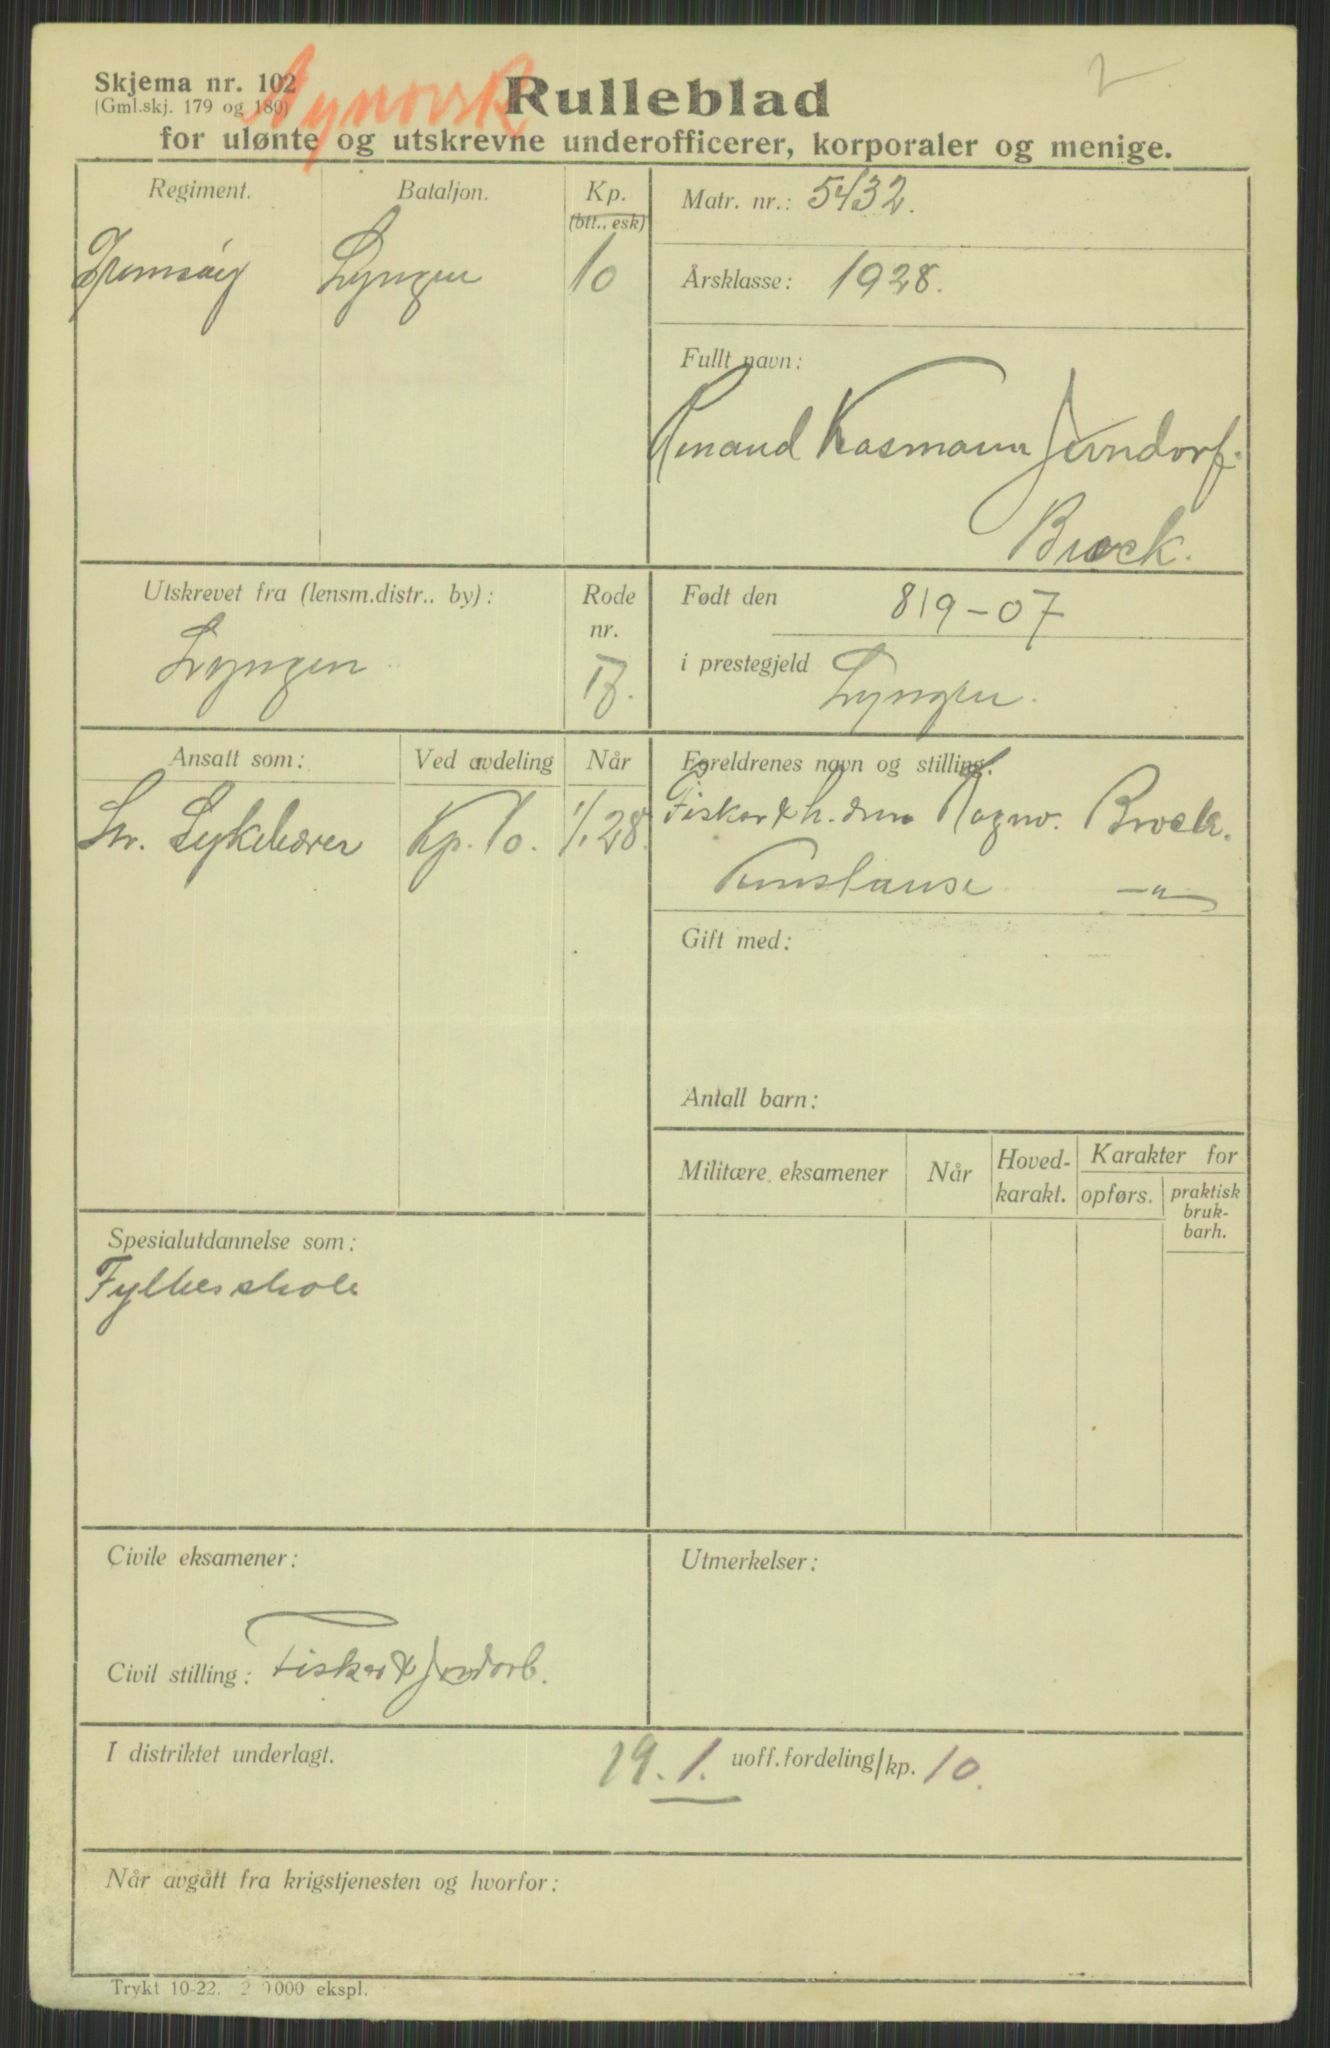 Nynorsk
2
Skjema nr. 102
(Gml.skj. 179 og 180)
Rulleblad
for ulønte og utskrevne underofficerer, korporaler og menige.
Regiment. Bataljon. Kp.
(btt., esk)
Lyngen 10
Matr. nr.: 5432.
Årsklasse: 1928.
Fullt navn:
Kosmann Jerndorf
Brock.
Utskrevet fra (lensm.distr.. by): Rode
nr.
Lyngen
Født den 8/9-07
i prestegjeld Lyngen.
Ansatt som: Ved avdeling Når
Sykebærer Kp. 10. 1/1 28.
Foreldrenes navn og stilling.
Fisker & Ragnv. Brock.
Konstanse —"—
Gift med:
Antall barn:
Militære eksamener Når Hoved-
karakt. Karakter for
opførs. praktisk
bruk-
barh.
Spesialutdannelse som:
Fylkesskole
Civile eksamener:
Utmerkelser:
Civil stilling: Fisker & Jordarb.
I distriktet underlagt. 19. 1. uoff.fordeling/kp. 10.
Når avgått fra krigstjenesten og hvorfor:
Trykt 10-22. 2 0000 ekspl.